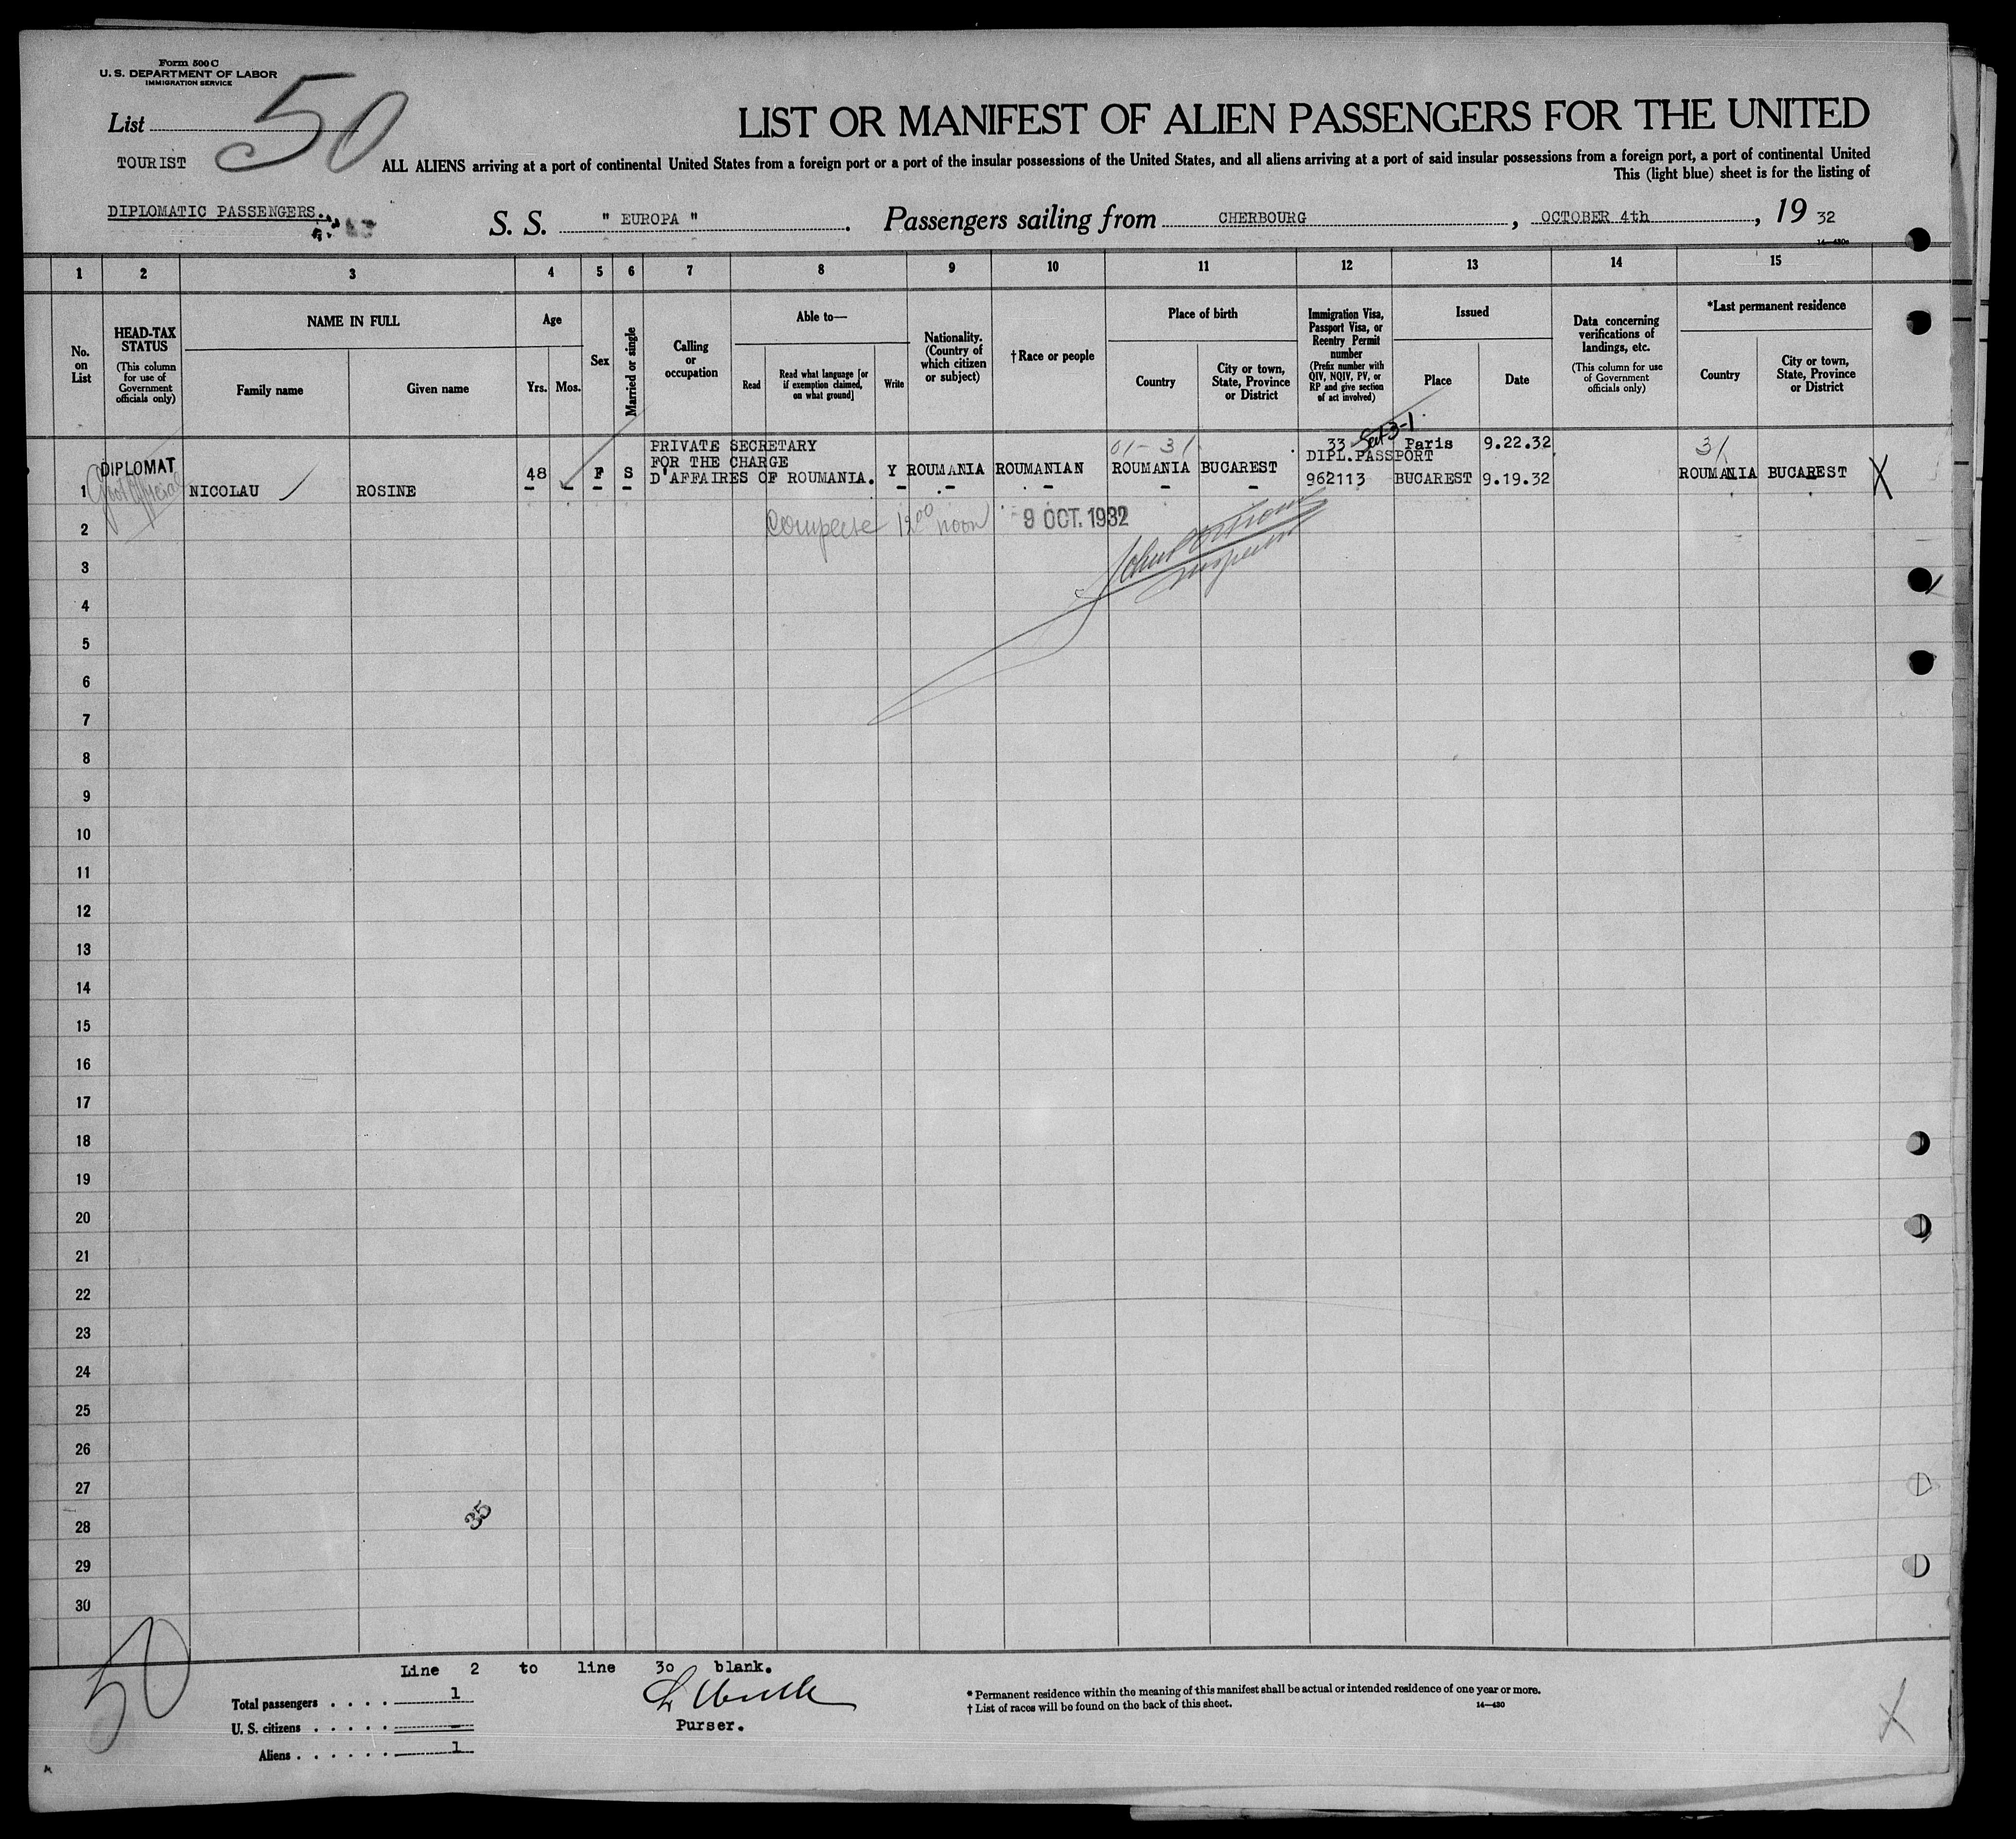 Form 500 C
U. S. DEPARTMENT OF LABOR
IMMIGRATION SERVICE
List 50
TOURIST
DIPLOMATIC PASSENGERS.
LIST OR MANIFEST OF ALIEN PASSENGERS FOR THE UNITED
ALL ALIENS arriving at a port of continental United States from a foreign port or a port of the insular possessions of the United States, and all aliens arriving at a port of said insular possessions from a foreign port, a port of continental United
This (light blue) sheet is for the listing of
S. S. " EUROPA ". Passengers sailing from CHERBOURG, OCTOBER 4th, 19 32
14—430a
1 2 3 4 5 6 7 8 9 10 11 12 13 14 15
No. on List
HEAD-TAX STATUS
(This column for use of Government officials only)
NAME IN FULL
Family name
Given name
Age
Yrs. Mos.
Sex
Married or single
Calling or occupation
Able to—
Read
Read what language [or if exemption claimed, on what ground]
Write
Nationality. (Country of which citizen or subject)
†Race or people
Place of birth
Country
City or town, State, Province or District
Immigration Visa, Passport Visa, or Reentry Permit number
(Prefix number with QIV, NQIV, PV, or RP and give section of act involved)
Issued
Place
Date
Data concerning verifications of landings, etc.
(This column for use of Government officials only)
*Last permanent residence
Country
City or town, State, Province or District
PRIVATE SECRETARY 01-31 33 Sect 3-1 Paris 9.22.32 31
DIPLOMAT FOR THE CHARGE DIPL.PASSPORT
48 F S D'AFFAIRES OF ROUMANIA. Y ROUMANIA ROUMANIAN ROUMANIA BUCAREST 962113 BUCAREST 9.19.32 ROUMANIA BUCAREST X
1 Govt Official NICOLAU ROSINE
2 12 00 noon 9 OCT. 1932
John
Inspector
3
4
5
6
7
8
9
10
11
12
13
14
15
16
17
18
19
20
21
22
23
24
25
26
27
28
29
30
35
50
Line 2 to line 3o blank.
Total passengers . . . . 1
U. S. citizens . . . . . —
Aliens . . . . . . 1
Purser.
* Permanent residence within the meaning of this manifest shall be actual or intended residence of one year or more.
† List of races will be found on the back of this sheet. 14—430
X